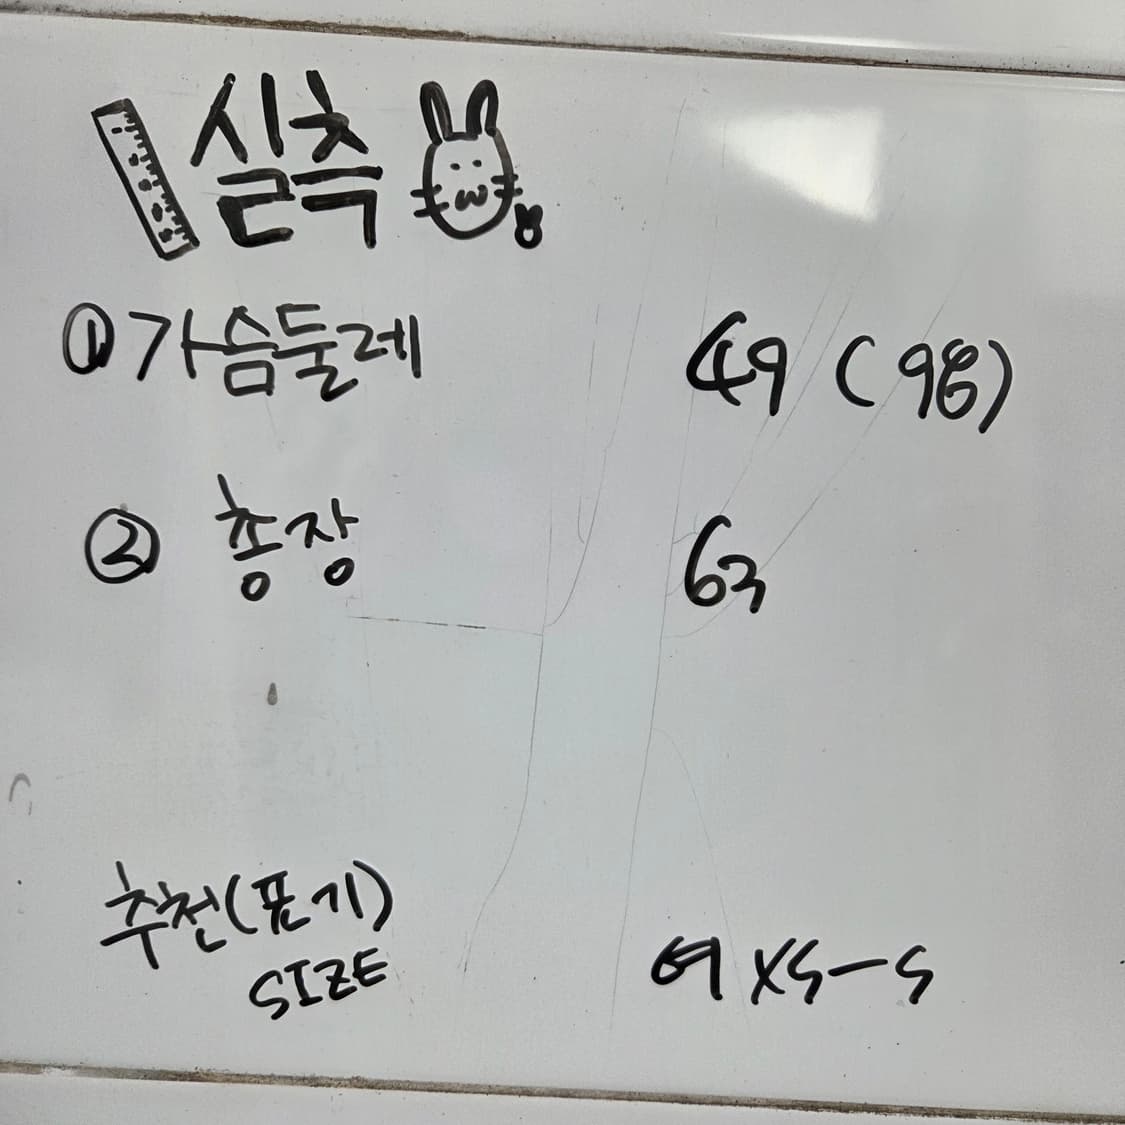 실측
① 가슴둘레 49 (98)
② 총장 63
추천(표기)
SIZE 여 XS-S